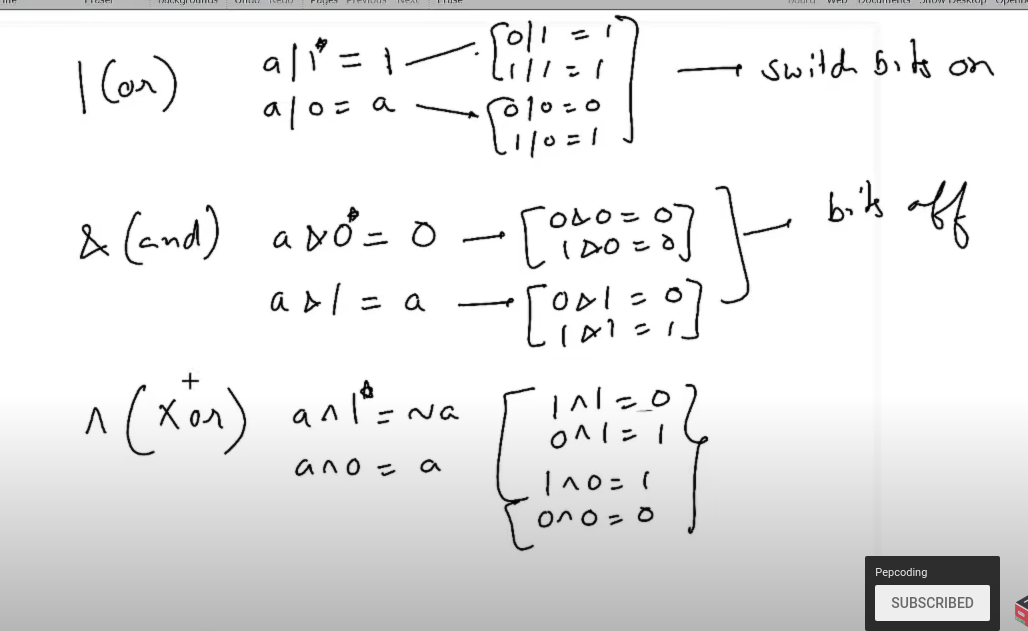 Eraser Backgrounds Undo Redo Pages Previous Next Erase Board Web Documents Show Desktop
| (or) a|1* = 1 [0|1 = 1
1|1 = 1 → switch bits on
a|0 = a → [0|0 = 0
1|0 = 1]
& (and) a&0* = 0 — [0&0 = 0
1&0 = 0] — bits off
a&1 = a → [0&1 = 0
1&1 = 1]
+
^ (Xor) a^1* = ~a [1^1 = 0
0^1 = 1
a^0 = a 1^0 = 1
[0^0 = 0]
Pepcoding
SUBSCRIBED